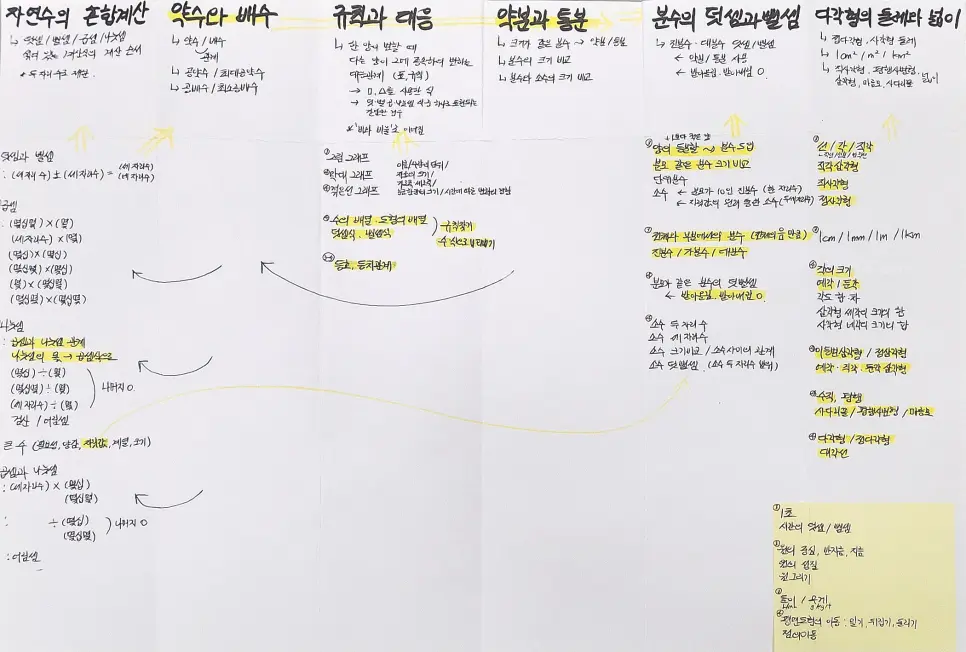 자연수의 혼합계산
↳ 덧셈/뺄셈/곱셈/나눗셈
* 두 자리 수로 제한.
약수와 배수
↳ 약수/배수
관계
↳ 공약수/최대공약수
↳ 공배수/최소공배수
규칙과 대응
↳ 한 양이 변할 때
다른 양이 그에 종속하여 변하는
대응관계 (표, 규칙)
→ □, △을 사용한 식
약분과 통분
↳ 크기가 같은 분수 → 약분/통분
↳ 분수의 크기 비교
↳ 분수와 소수의 크기 비교
분수의 덧셈과뺄셈
↳ 진분수·대분수 덧셈/뺄셈
← 약분/통분 사용
← 받아올림·받아내림 O.
다각형의 둘레와 넓이
↳ 정다각형, 사각형 둘레
↳ 1cm²/m²/km²
↳ 직사각형, 평행사변형,
삼각형, 마름모, 사다리꼴 넓이
덧셈과 뺄셈
: (세자리 수) ± (세자리수) = (세자리수)
(네자리수)
곱셈
: (몇십몇) × (몇)
(세자리수) × (몇)
(몇십) × (몇십)
(몇십몇) × (몇십)
(몇) × (몇십몇)
(몇십몇) × (몇십몇)
나눗셈
: 곱셈과 나눗셈 관계
나눗셈의 몫 → 곱셈식으로
(몇십) ÷ (몇)
(몇십몇) ÷ (몇)
(세자리수) ÷ (몇)
나머지 O.
검산 / 어림셈
큰 수 (
자릿값, 계열, 크기)
곱셈과 나눗셈
: (세자리수) × (몇십)
(몇십몇)
: ÷ (몇십)
(몇십몇)
나머지 O
: 어림셈
그림 그래프
막대 그래프
꺾은선 그래프
수의 배열·도형의 배열
덧셈식·뺄셈식
규칙찾기
등호, 동치관계
양의 등분할 → 분수 도입
분모 같은 분수 크기 비교
단위분수
소수 ← 분모가 10인 진분수 (한 자리수)
전체와 부분에서의 분수
진분수/가분수/대분수
분모가 같은 분수의 덧뺄셈
← 받아올림·받아내림 O.
소수 두 자리 수
소수 세 자리수
소수 크기비교/소수사이의 관계
소수 덧뺄셈 (소수 두 자리수 범위)
선 / 각 / 직각
직각삼각형
직사각형
정사각형
1cm / 1mm / 1m / 1km
각의 크기
예각 / 둔각
각도 합·차
삼각형 세각의 크기의 합
사각형 네각의 크기의 합
이등변삼각형 / 정삼각형
예각·직각·둔각 삼각형
수직, 평행
사다리꼴 / 평행사변형 / 마름모
다각형 / 정다각형
대각선
1초
시간의 덧셈/뺄셈
원의 중심, 반지름, 지름
원의 성질
원그리기
들이 / 무게
평면도형의 이동 : 밀기, 뒤집기, 돌리기
점의이동